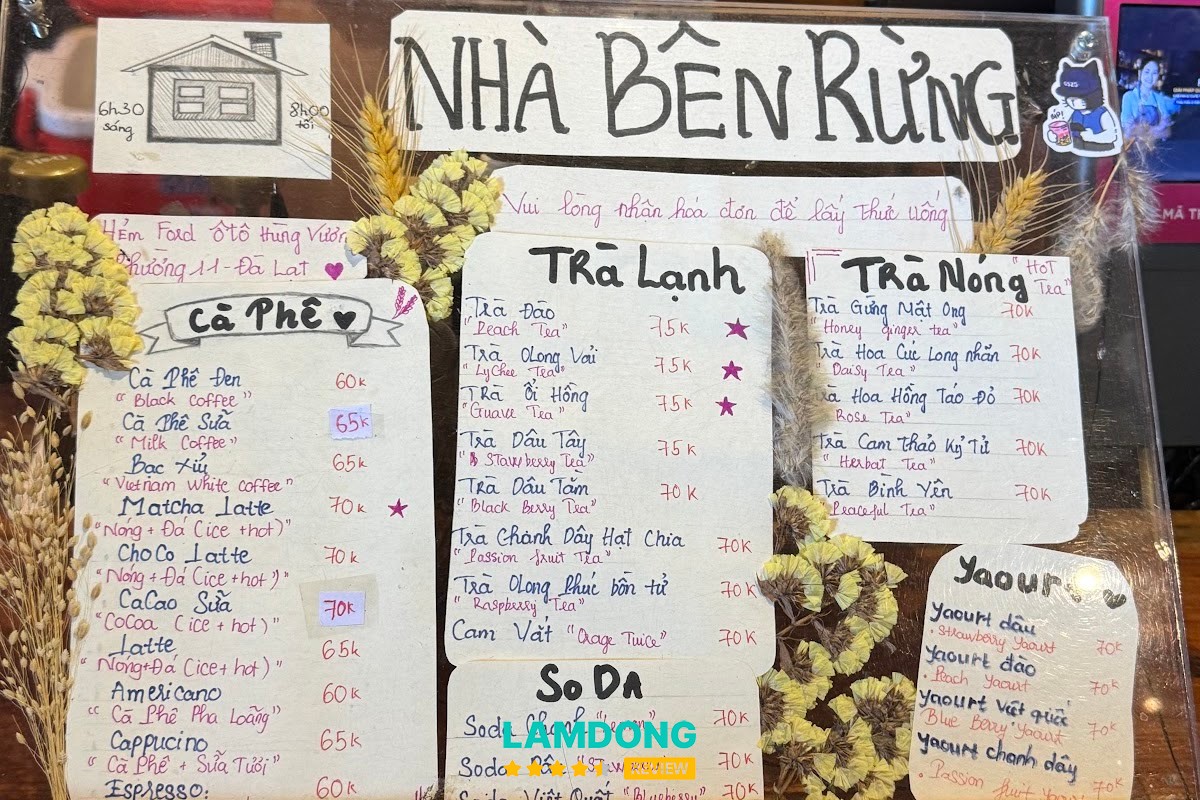 6h30
sáng
8h00
tối
NHÀ BÊN RỪNG
Vui lòng nhân hóa đơn để lấy thức uống
Hẻm Ford ôtô Hùng Vương
Phường 11 - Đà Lạt
Cà Phê
Cà Phê Đen 60K
"Black Coffee"
Cà Phê Sữa 65K
"Milk Coffee"
Bạc Xỉu 65K
"Vietnam White Coffee"
Matcha Latte 70K
"Nóng + Đá (ice + hot)"
CHoCo Latte 70K
"Nóng + Đá (ice + hot)"
CaCao Sữa 70K
"CoCoa (ice + hot)"
Latte 65K
"Nóng + Đá (ice + hot)"
Americano 60K
"Cà Phê Pha Loãng"
Cappucino 65K
"Cà Phê + Sữa Tươi"
Espresso: 60K
TRà Lạnh
Trà Đào 75K
"Peach Tea"
Trà OLong Vải 75K
"LyChee Tea"
Trà Ổi Hồng 75K
"Guave Tea"
Trà Dâu Tây 75K
"Stawberry Tea"
Trà Dâu Tằm 70K
"Black Berry Tea"
Trà Chanh Dây Hạt Chia 70K
"Passion fruit Tea"
Trà OLong Phúc bồn tử 70K
"Raspberry Tea"
Cam Vắt "Orage Tuice" 70K
SoDA
Soda Chanh 70K
Soda Dâu 70K
Soda Việt Quất "Blueberry" 70K
TRà NóNG "HoT Tea"
Trà Gừng Mật Ong 70K
"Honey ginger tea"
Trà Hoa Cúc Long nhãn 70K
"Daisy Tea"
Trà Hoa Hồng Táo Đỏ 70K
"Rose Tea"
Trà Cam thảo Kỷ Tử 70K
"Herbat Tea"
Trà Bình Yên 70K
"Peaceful Tea"
Yaourt
Yaourt dâu
Strawberry Yaourt 70K
Yaourt đào
Peach Yaourt 70K
Yaourt việt quất
"Blue Berry" Yaourt 70K
Yaourt chanh dây
Passion fruit 70K
LAMDONG
REVIEW